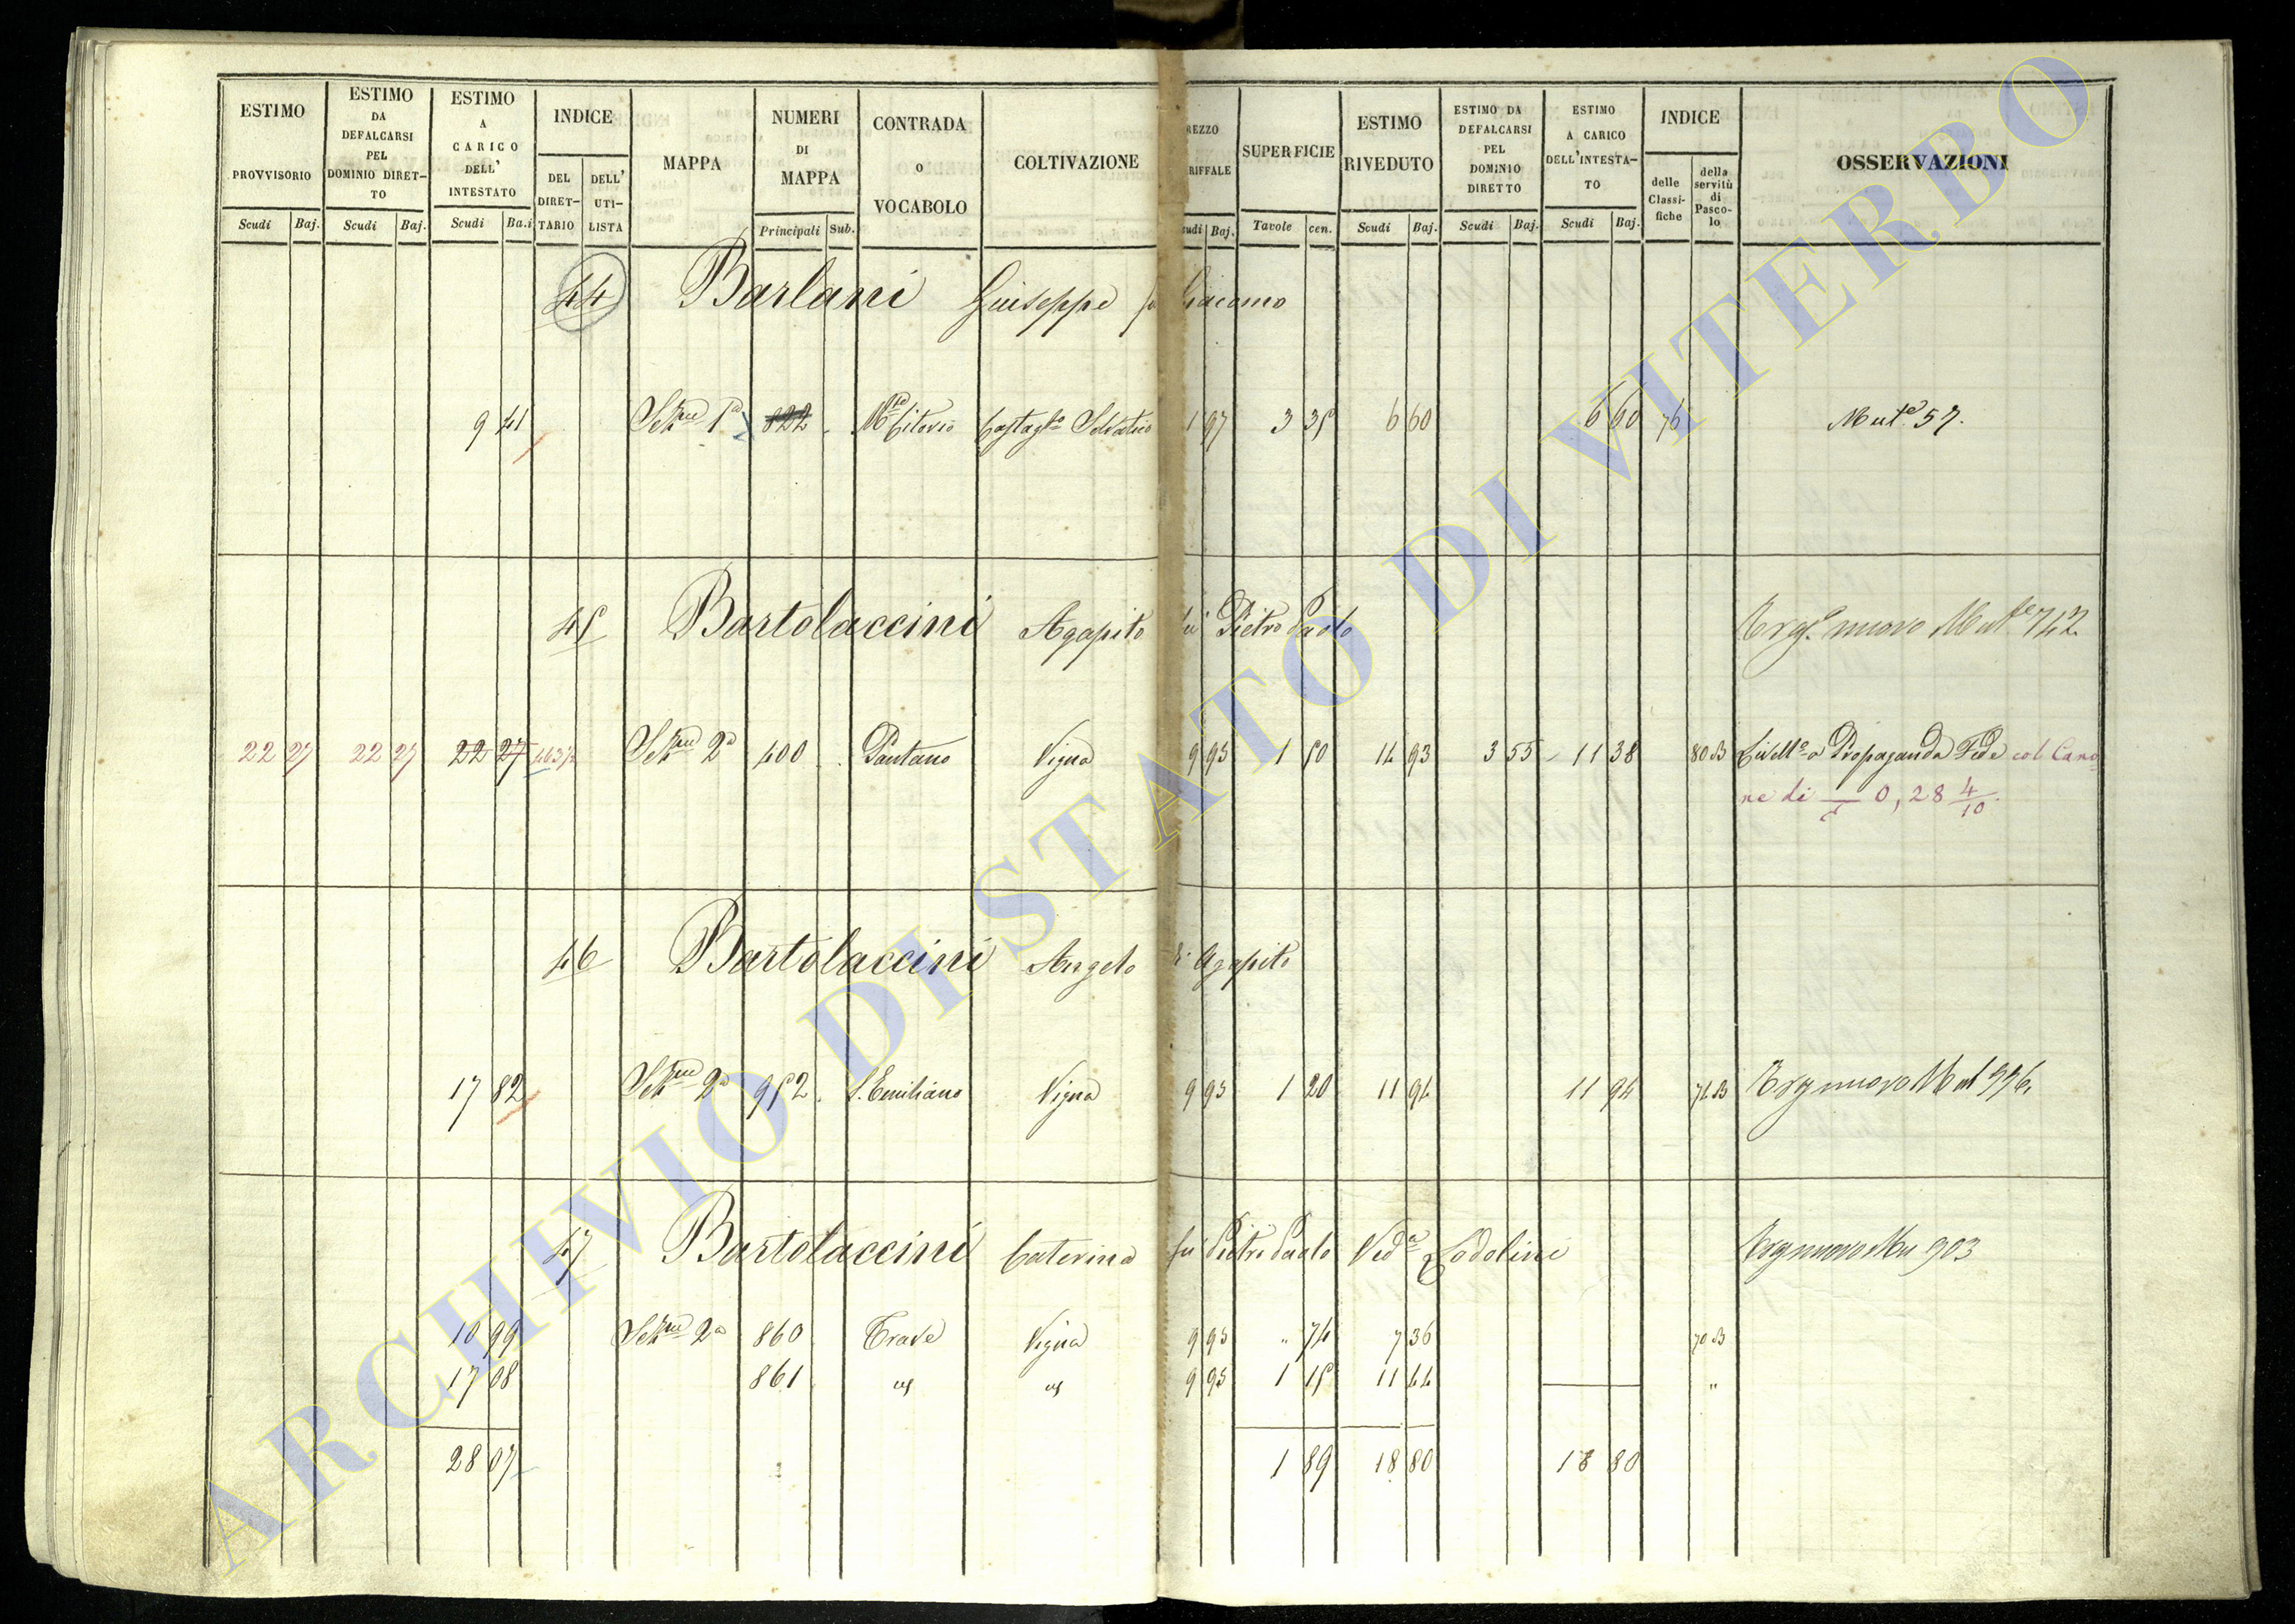 ESTIMO PROVVISORIO Scudi Baj.
ESTIMO DA DEFALCARSI PEL DOMINIO DIRET-TO Scudi Baj.
ESTIMO A CARICO DELL' INTESTATO Scudi Ba.i
INDICE DEL DIRET-TARIO DELL' UTI-LISTA
MAPPA
NUMERI DI MAPPA Principali Sub.
CONTRADA O VOCABOLO
COLTIVAZIONE
REZZO RIFFALE udi Baj.
SUPERFICIE Tavole cen.
ESTIMO RIVEDUTO Scudi Baj.
ESTIMO DA DEFALCARSI PEL DOMINIO DIRETTO Scudi Baj.
ESTIMO A CARICO DELL'INTESTA-TO Scudi Baj.
INDICE delle Classi-fiche della servitù di Pasco-lo
OSSERVAZIONI
44 Barlani Giuseppe Giacomo
9 41 1a 822 Castagto Selvatico 1 97 3 35 6 60 6 60 76 Mute 57.
45 Bartolaccini Agapito fu Pietro Paolo nuovo 742
22 27 22 27 22 27 2a 400 Pantano Vigna 9 95 1 50 14 93 3 55 11 38 80 B Livello a Propaganda Fede col Cano-
ne di 0,28 4/10.
46 Bartolaccini Angelo di Agapito
17 82 2a 952 S. Emiliano Vigna 9 95 1 20 11 94 11 94 74 B nuovo 996
47 Bartolaccini Caterina fu Pietro Paolo Veda Lodolini nuovo 903
10 99 2a 860 Trave Vigna 9 95 " 74 7 36 70 B
17 08 861 9 95 1 15 11 44 "
28 07 1 89 18 80 18 80
ARCHIVIO DI STATO DI VITERBO